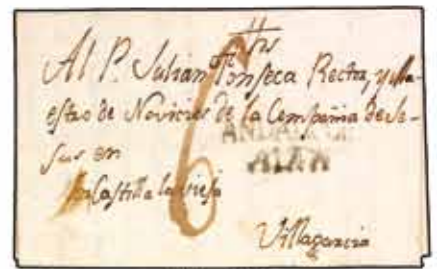 Jhs
Al P. Julian Fonseca Rector, y Ma-
estro de Novicios de la Compañia de Je-
sus en
6
Castilla la vieja
Villagarcia